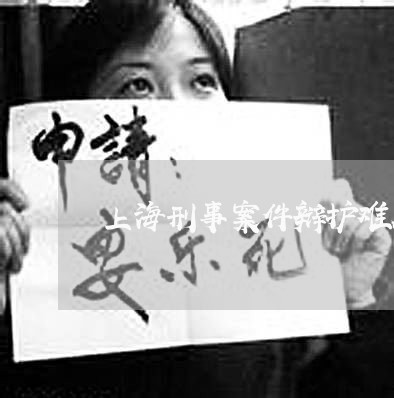 申請：
上海刑事案件辩护难
安乐死